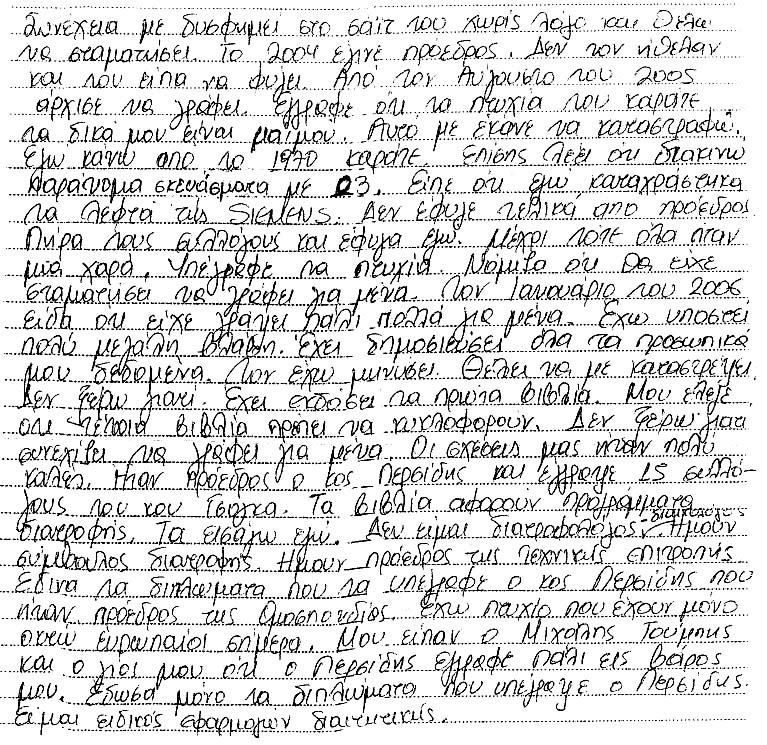 Συνέχεια με δυσφημεί στο σάιτ του χωρίς λόγο και θέλω
να σταματήσει. Το 2004 έγινε πρόεδρος. Δεν τον ήθελαν
και του είπα να φύγει. Από τον Αύγουστο του 2005
άρχισε να γράφει. Έγραφε ότι τα πτυχία του καράτε
τα δικά μου είναι μαϊμού. Αυτό με έκανε να καταστραφώ.
Εγώ κάνω από το 1970 καράτε. Επίσης λέει ότι διακινώ
παράνομα σκευάσματα με 23. Είπε ότι εγώ καταχράστηκα
τα λεφτά της SIEMENS. Δεν έφυγε τελικά από πρόεδρος
Πήρα τους συλλόγους και έφυγα εγώ. Μέχρι τότε όλα ήταν
μια χαρά. Υπέγραφε τα πτυχία. Νόμιζα ότι θα είχε
σταματήσει να γράφει για μένα. Τον Ιανουάριο του 2006
είδα ότι είχε γράψει πάλι πολλά για μένα. Έχω υποστεί
πολύ μεγάλη βλάβη. Έχει δημοσιεύσει όλα τα προσωπικά
μου δεδομένα. Τον έχω μηνύσει. Θέλει να με καταστρέψει.
Δεν ξέρω γιατί. Έχει εκδόσει τα πρώτα βιβλία. Μου έλεγε
ότι τέτοια βιβλία πρέπει να κυκλοφορούν. Δεν ξέρω γιατί
συνεχίζει να γράφει για μένα. Οι σχέσεις μας ήταν πολύ
καλές. Ήταν πρόεδρος ο κος Περσίδης και έγραψε 15 συλλό-
γους του κου Τσάγκα. Τα βιβλία αφορούν προγράμματα
διατροφής. Τα εισάγω εγώ. Δεν είμαι διατροφολόγος - διαιτολόγος. Ήμουν
σύμβουλος διατροφής. Ήμουν πρόεδρος της τεχνικής επιτροπής
Έδινα τα διπλώματα που τα υπέγραφε ο κος Περσίδης που
ήταν πρόεδρος της Ομοσπονδίας. Έχω πτυχίο που έχουν μόνο
οκτώ ευρωπαίοι σήμερα. Μου είπαν ο Μιχάλης Τούμπης
και ο γιος μου ότι ο Περσίδης έγραφε πάλι εις βάρος
μου. Έδωσα μόνο τα διπλώματα που υπέγραψε ο Περσίδης.
Είμαι ειδικός εφαρμογών διαιτητικής.